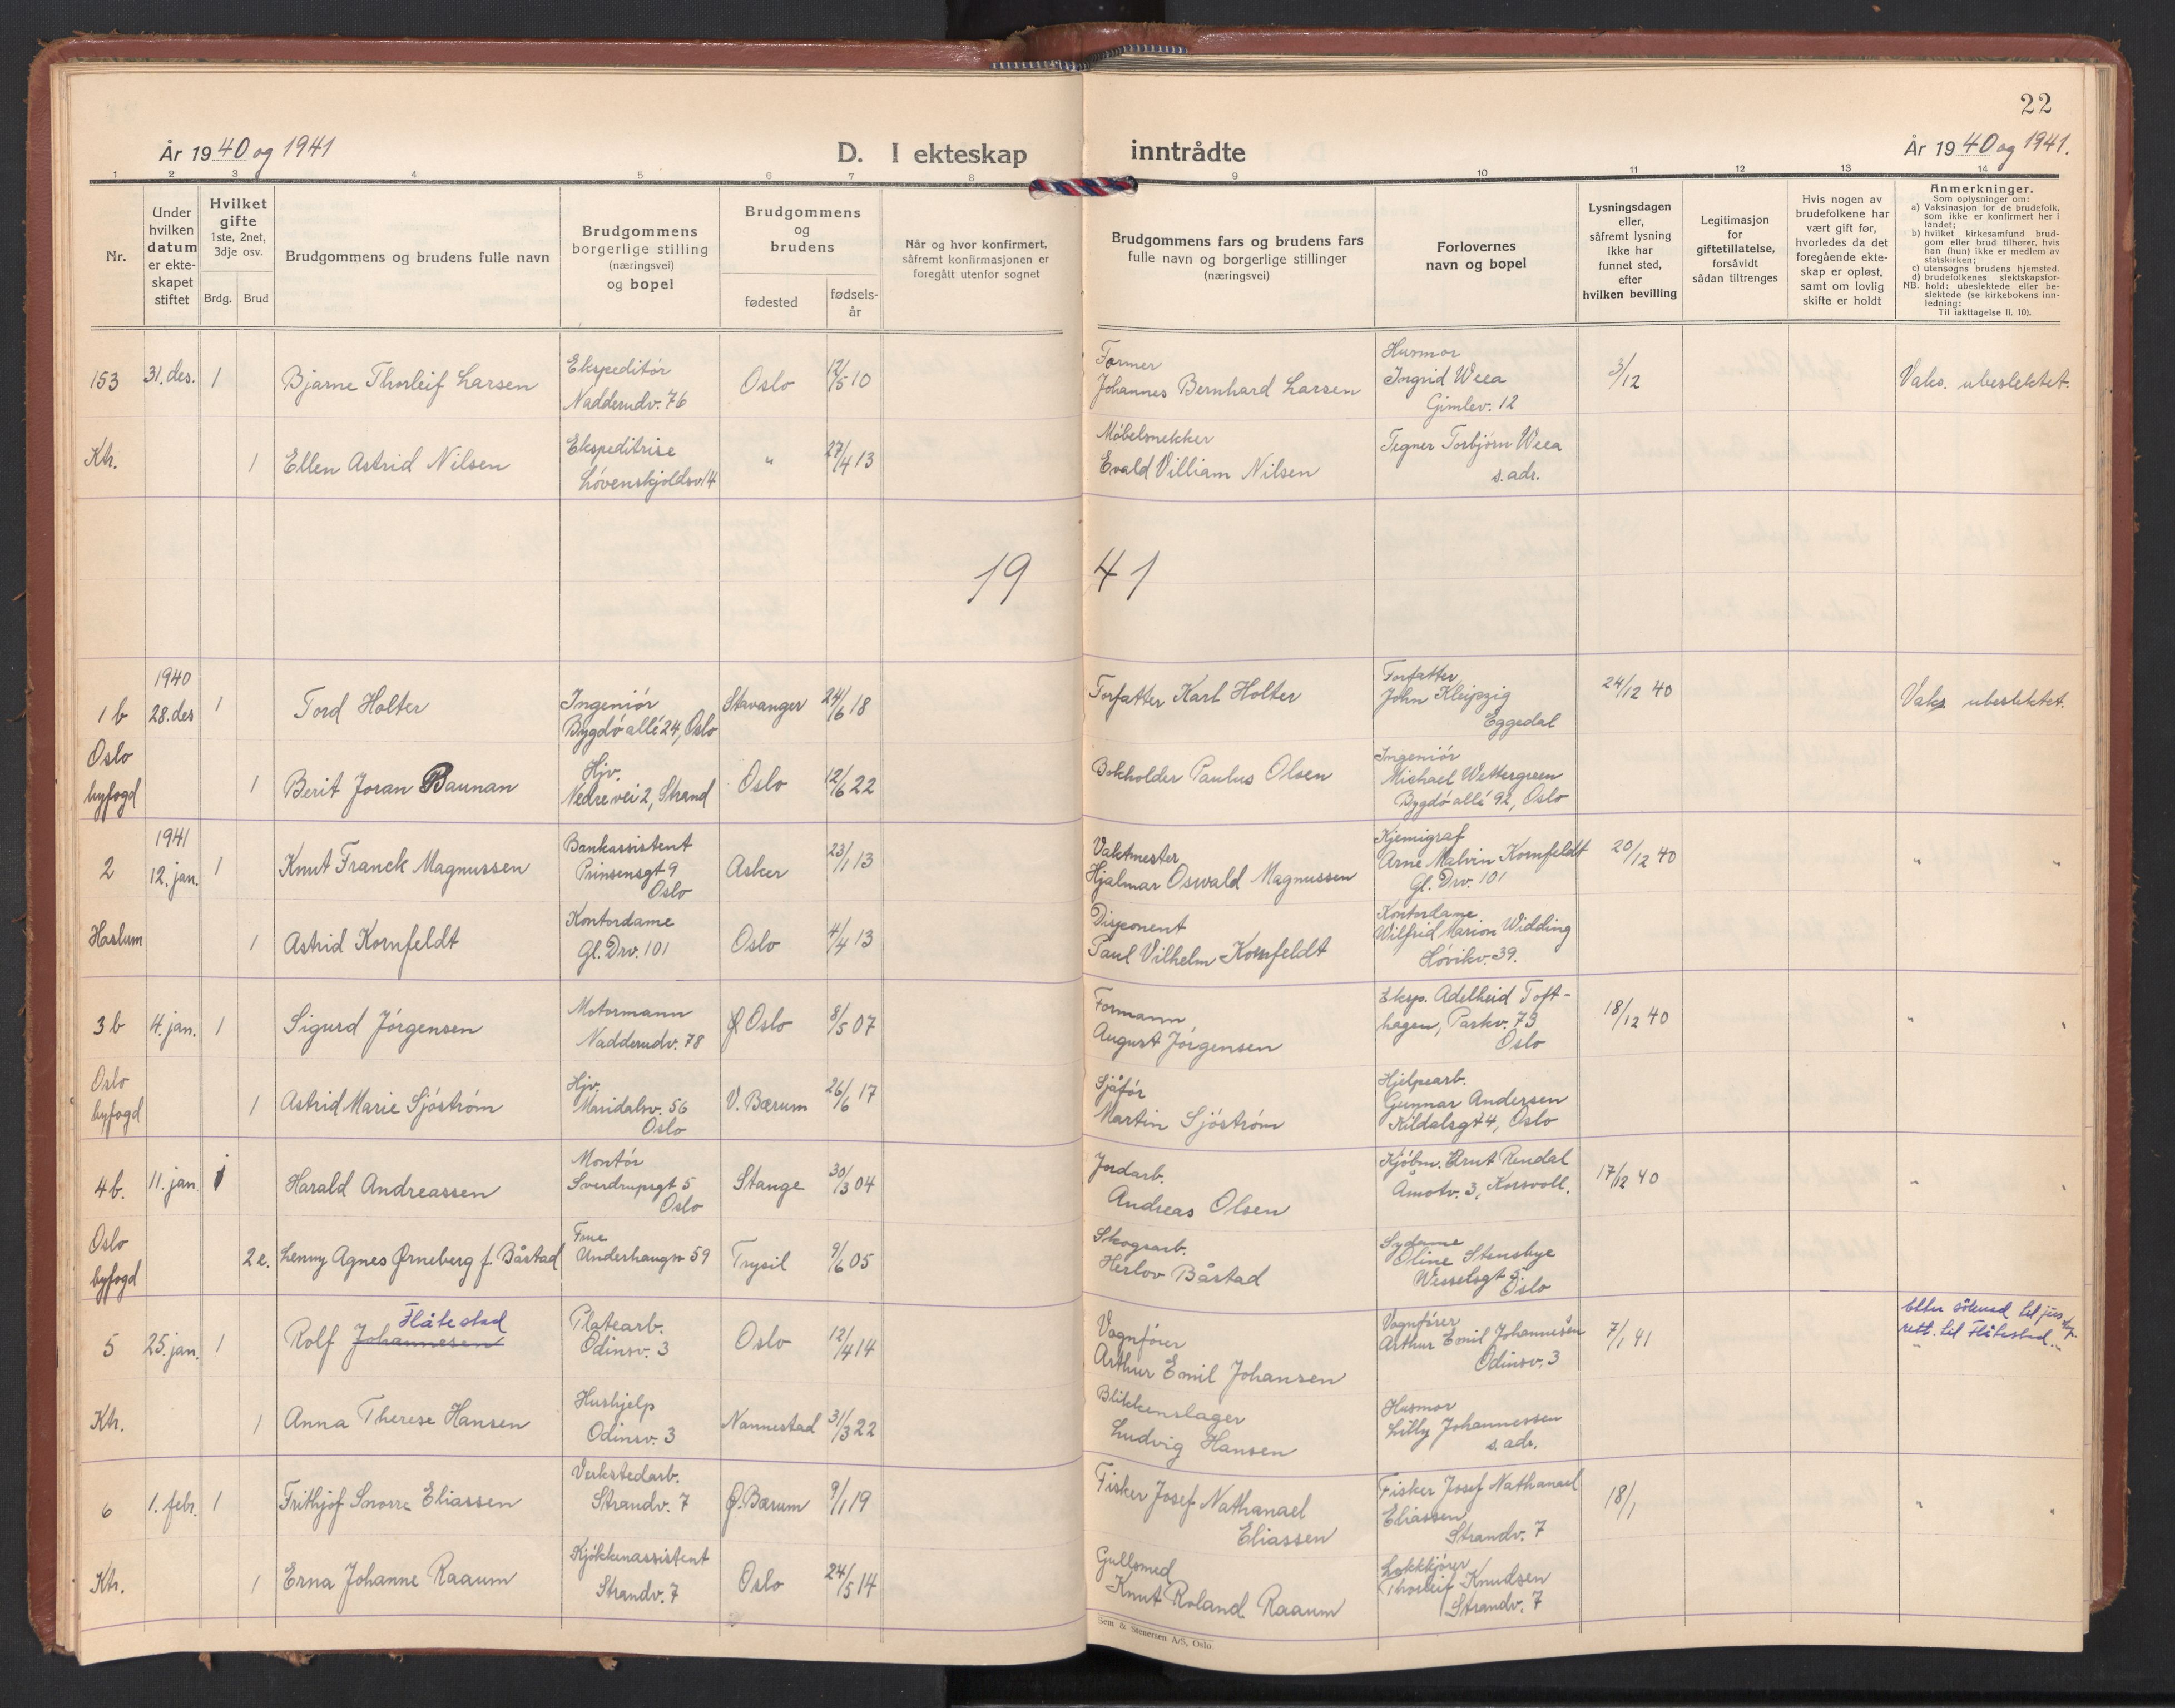 22
År 1940 og 1941
D. I ekteskap inntrådte
År 1940 og 1941.
1 2 3 4 5 6 7 8 9 10 11 12 13 14
Nr.
Under hvilken datum er ekte-skapet stiftet
Hvilket gifte
1ste, 2net, 3dje osv.
Brdg. Brud
Brudgommens og brudens fulle navn
Brudgommens borgerlige stilling (næringsvei) og bopel
Brudgommens og brudens
fødested
fødsels-år
Når og hvor konfirmert, såfremt konfirmasjonen er foregått utenfor sognet
Brudgommens fars og brudens fars fulle navn og borgerlige stillinger (næringsvei)
Forlovernes navn og bopel
Lysningsdagen eller, såfremt lysning ikke har funnet sted, efter hvilken bevilling
Legitimasjon for giftetillatelse, forsåvidt sådan tiltrenges
Hvis nogen av brudefolkene har vært gift før, hvorledes da det foregående ekte-skap er opløst, samt om lovlig skifte er holdt
Anmerkninger.
Som oplysninger om:
a) Vaksinasjon for de brudefolk, som ikke er konfirmert her i landet;
b) hvilket kirkesamfund brud-gom eller brud tilhører, hvis han (hun) ikke er medlem av statskirken;
c) utensogns brudens hjemsted.
d) brudefolkenes slektskapsfor-hold: ubeslektede eller be-slektede (se kirkebokens inn-ledning:
NB.
Til iakttagelse II. 10).
153 31. des. 1 Bjarne Thorleif Larsen Ekspeditör Nadderudv. 76 Oslo 12/5 10 Former Johannes Bernhard Larsen Husmor Ingrid Weea Gimlev. 12 3/12 Vaks. ubeslektet.
Kh. 1 Ellen Astrid Nilsen Ekspeditrise Lövenskjoldsv. 14 " 27/4 13 Möbelsnekker Evald Villiam Nilsen Tegner Torbjörn Weea s. adr.
19 41
1 b 1940 28. des 1 Tord Holter Ingeniör Bygdö allé 24, Oslo Stavanger 24/6 18 Forfatter Karl Holter Forfatter John Kleipzig Eggedal 24/12 40 Vaks ubeslektet.
Oslo byfogd 1 Berit Joran Baunan Hjv. Nedre vei 2, Strand Oslo 12/6 22 Bokholder Paulus Olsen Ingeniör Michael Wettergreen Bygdö allé 92, Oslo
2 1941 12. jan. 1 Knut Franck Magnussen Bankassistent Prinsensgt 9 Oslo Asker 23/1 13 Vaktmester Hjalmar Oswald Magnussen Kjemigraf Arne Malvin Kornfeldt Gl. Drv. 101 20/12 40 " "
Haslum 1 Astrid Kornfeldt Kontordame Gl. Drv. 101 Oslo 4/4 13 Disponent Paul Vilhelm Kornfeldt Kontordame Wilfrid Marion Widding Hövikv. 39.
3 b 4. jan. 1 Sigurd Jörgensen Motormann Nadderudv. 78 Oslo 8/5 07 Formann August Jörgensen Eksp. Adelheid Toft-hagen, Parkv. 79 Oslo 18/12 40 "
Oslo byfogd 1 Astrid Marie Sjöström Hjv. Maridalsv. 56 Oslo V. Bærum 26/6 17 Sjåför Martin Sjöström Hjelpearb. Gunnar Andersen Kildalsgt 4, Oslo
4 b. 11. jan. 1 Harald Andreassen Montör Sverdrupsgt 5 Oslo Stange 30/3 04 Jordarb. Andreas Olsen Kjöbm. Arnt Rendal Åmotv. 3, Korsvoll. 17/12 40 "
Oslo byfogd 2 e. Lenny Agnes Ørneberg f. Båstad Frue Underhaugsv 59 Trysil 9/6 05 Skogsarb. Herlov Båstad Sydame Oline Stensbye Wesselsgt 5. Oslo
5 25. jan. 1 Rolf Johannesen Flåtestad Platearb. Odinsv. 3 Oslo 12/4 14 Vognförer Arthur Emil Johansen Vognförer Arthur Emil Johannessen Odinsv. 3 7/1 41 Etter söknad til jus.dep. rett. til Flåtestad.
Kh. 1 Anna Therese Hansen Hushjelp Odinsv. 3 Nannestad 31/3 22 Blikkenslager Ludvig Hansen Husmor Lilly Johannessen s. adr.
6 1. febr. 1 Frithjof Snorre Eliassen Verkstedarb. Strandv. 7 Ø. Bærum 9/1 19 Fisker Josef Nathanael Eliassen Fisker Josef Nathanael Eliassen Strandv. 7 18/1 "
Kh. 1 Erna Johanne Raaum Kjökkenassistent Strandv. 7 Oslo 24/5 14 Gullsmed Knut Roland Raaum Lokkjörer Thorleif Knudsen Strandv. 7
Sem & Stenersen A/S, Oslo.